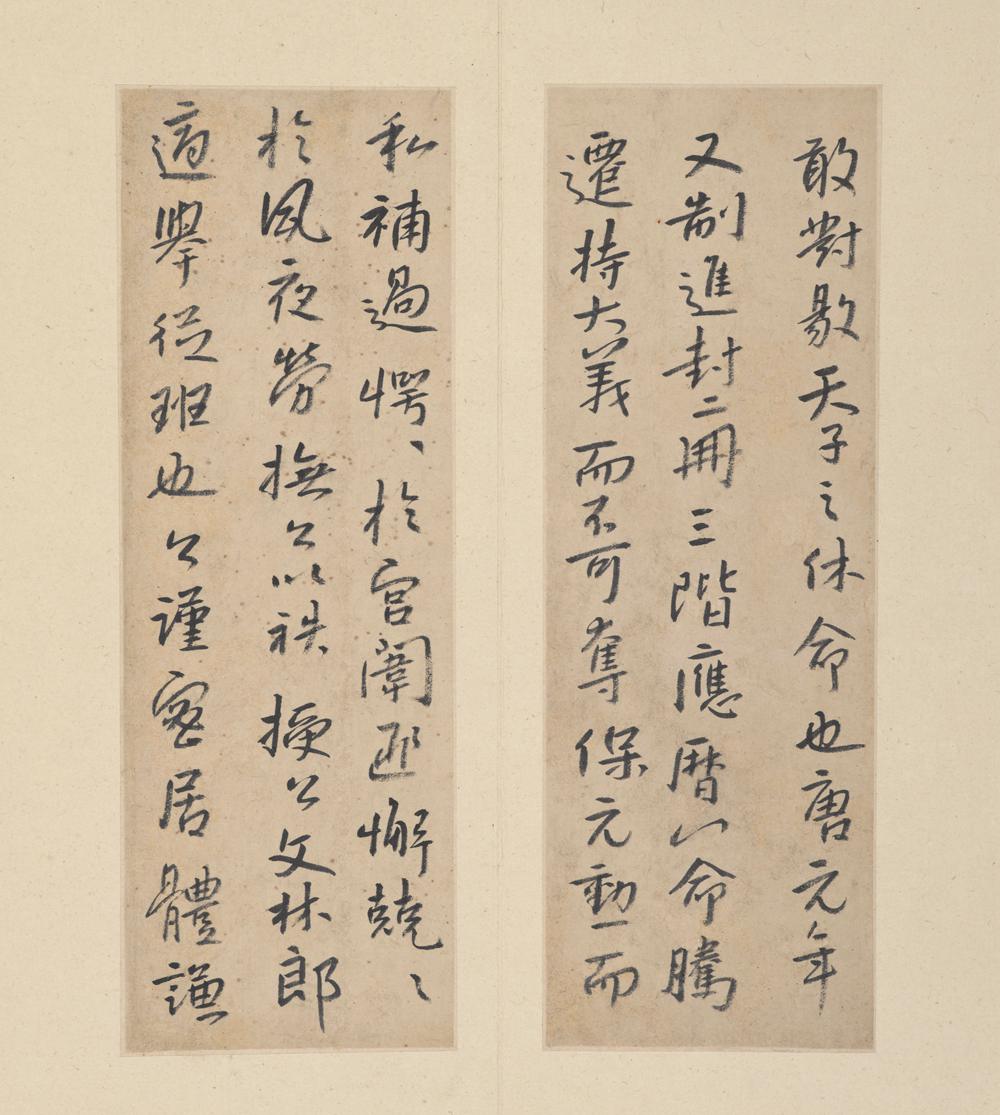 敢對敭天子之休命也唐元年
又制進封二冊三階應曆八命騰
遷持大義而不可奪保元勳而
私補過愕愕於宮闈匪懈兢兢
於夙夜勞撫公以袟授公文林郎
適舉從班也公謹密居體謙